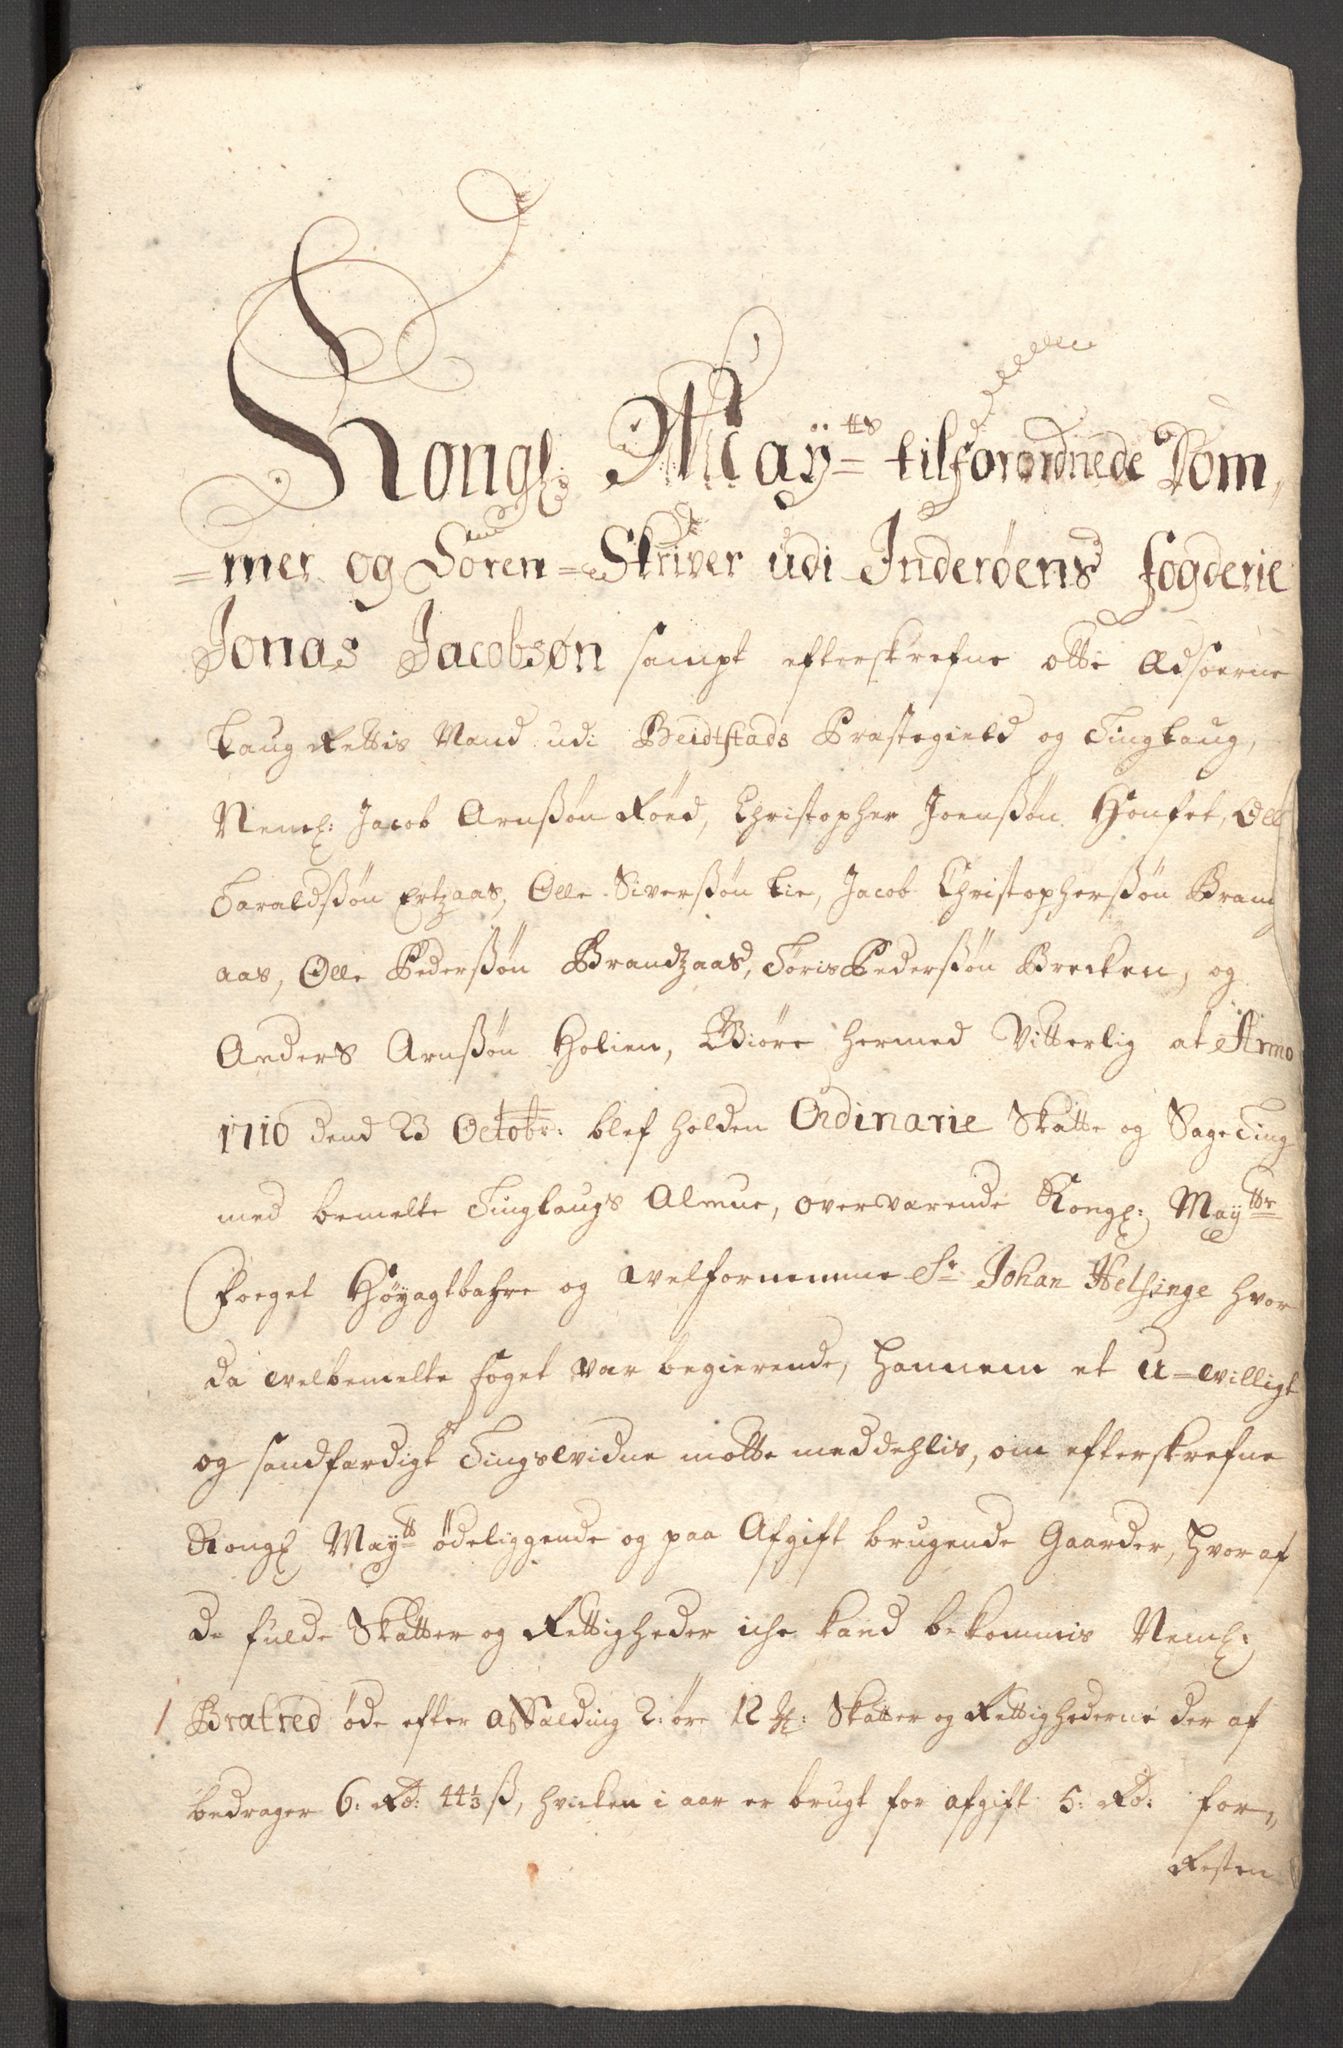 Kongl: Maÿ=tts tilforordnede Dom,,
=mer og Soren=Skriver udi Inderøens fogderie
Jonas Jacobsøn sampt efterskrefne otte Edsoerne
Laug Rettis Mænd udi Beidtstads Præstegield og Tinglaug,
Neml: Jacob Arnßøn Røed, Christopher Joenßøn Hønset, Olle
Taraldßøn Ertzaas, Olle Siverßøn Lie, Jacob Christopherßøn Brand
aas, Olle Pederßøn Brandzaas, Tøris Pederßøn Brecken, og
Anders Arnßøn Holien, Giøre hermed Vitterlig at Anno
1710 dend 23 Octobr: blef holden Ordinarie Skatte og Sage Ting
med bemelte Tinglaugs Almue, overværende Kongl: Maÿtts
Foeget Høyagtbahre og welfornemme Sr Johan Helsinge hvor
da welbemelte foget var begierende, hannem et U=willigt
og sandfærdigt Tingswidne motte meddehlis, om efterskrefne
Kongl Maÿtts ødeliggende og paa Afgift brugende Gaarder, hvor af
de fulde Skatter og Rettigheder iche kand bekommis Neml:
1 Bratred øde efter affælding 2: øre 12 ℳ: Skatter og Rettighederne der af
bedrager 6: Rd: 44⅓ ß, hvilken i aar er brugt for afgift 5: Rd: for,,
Resten